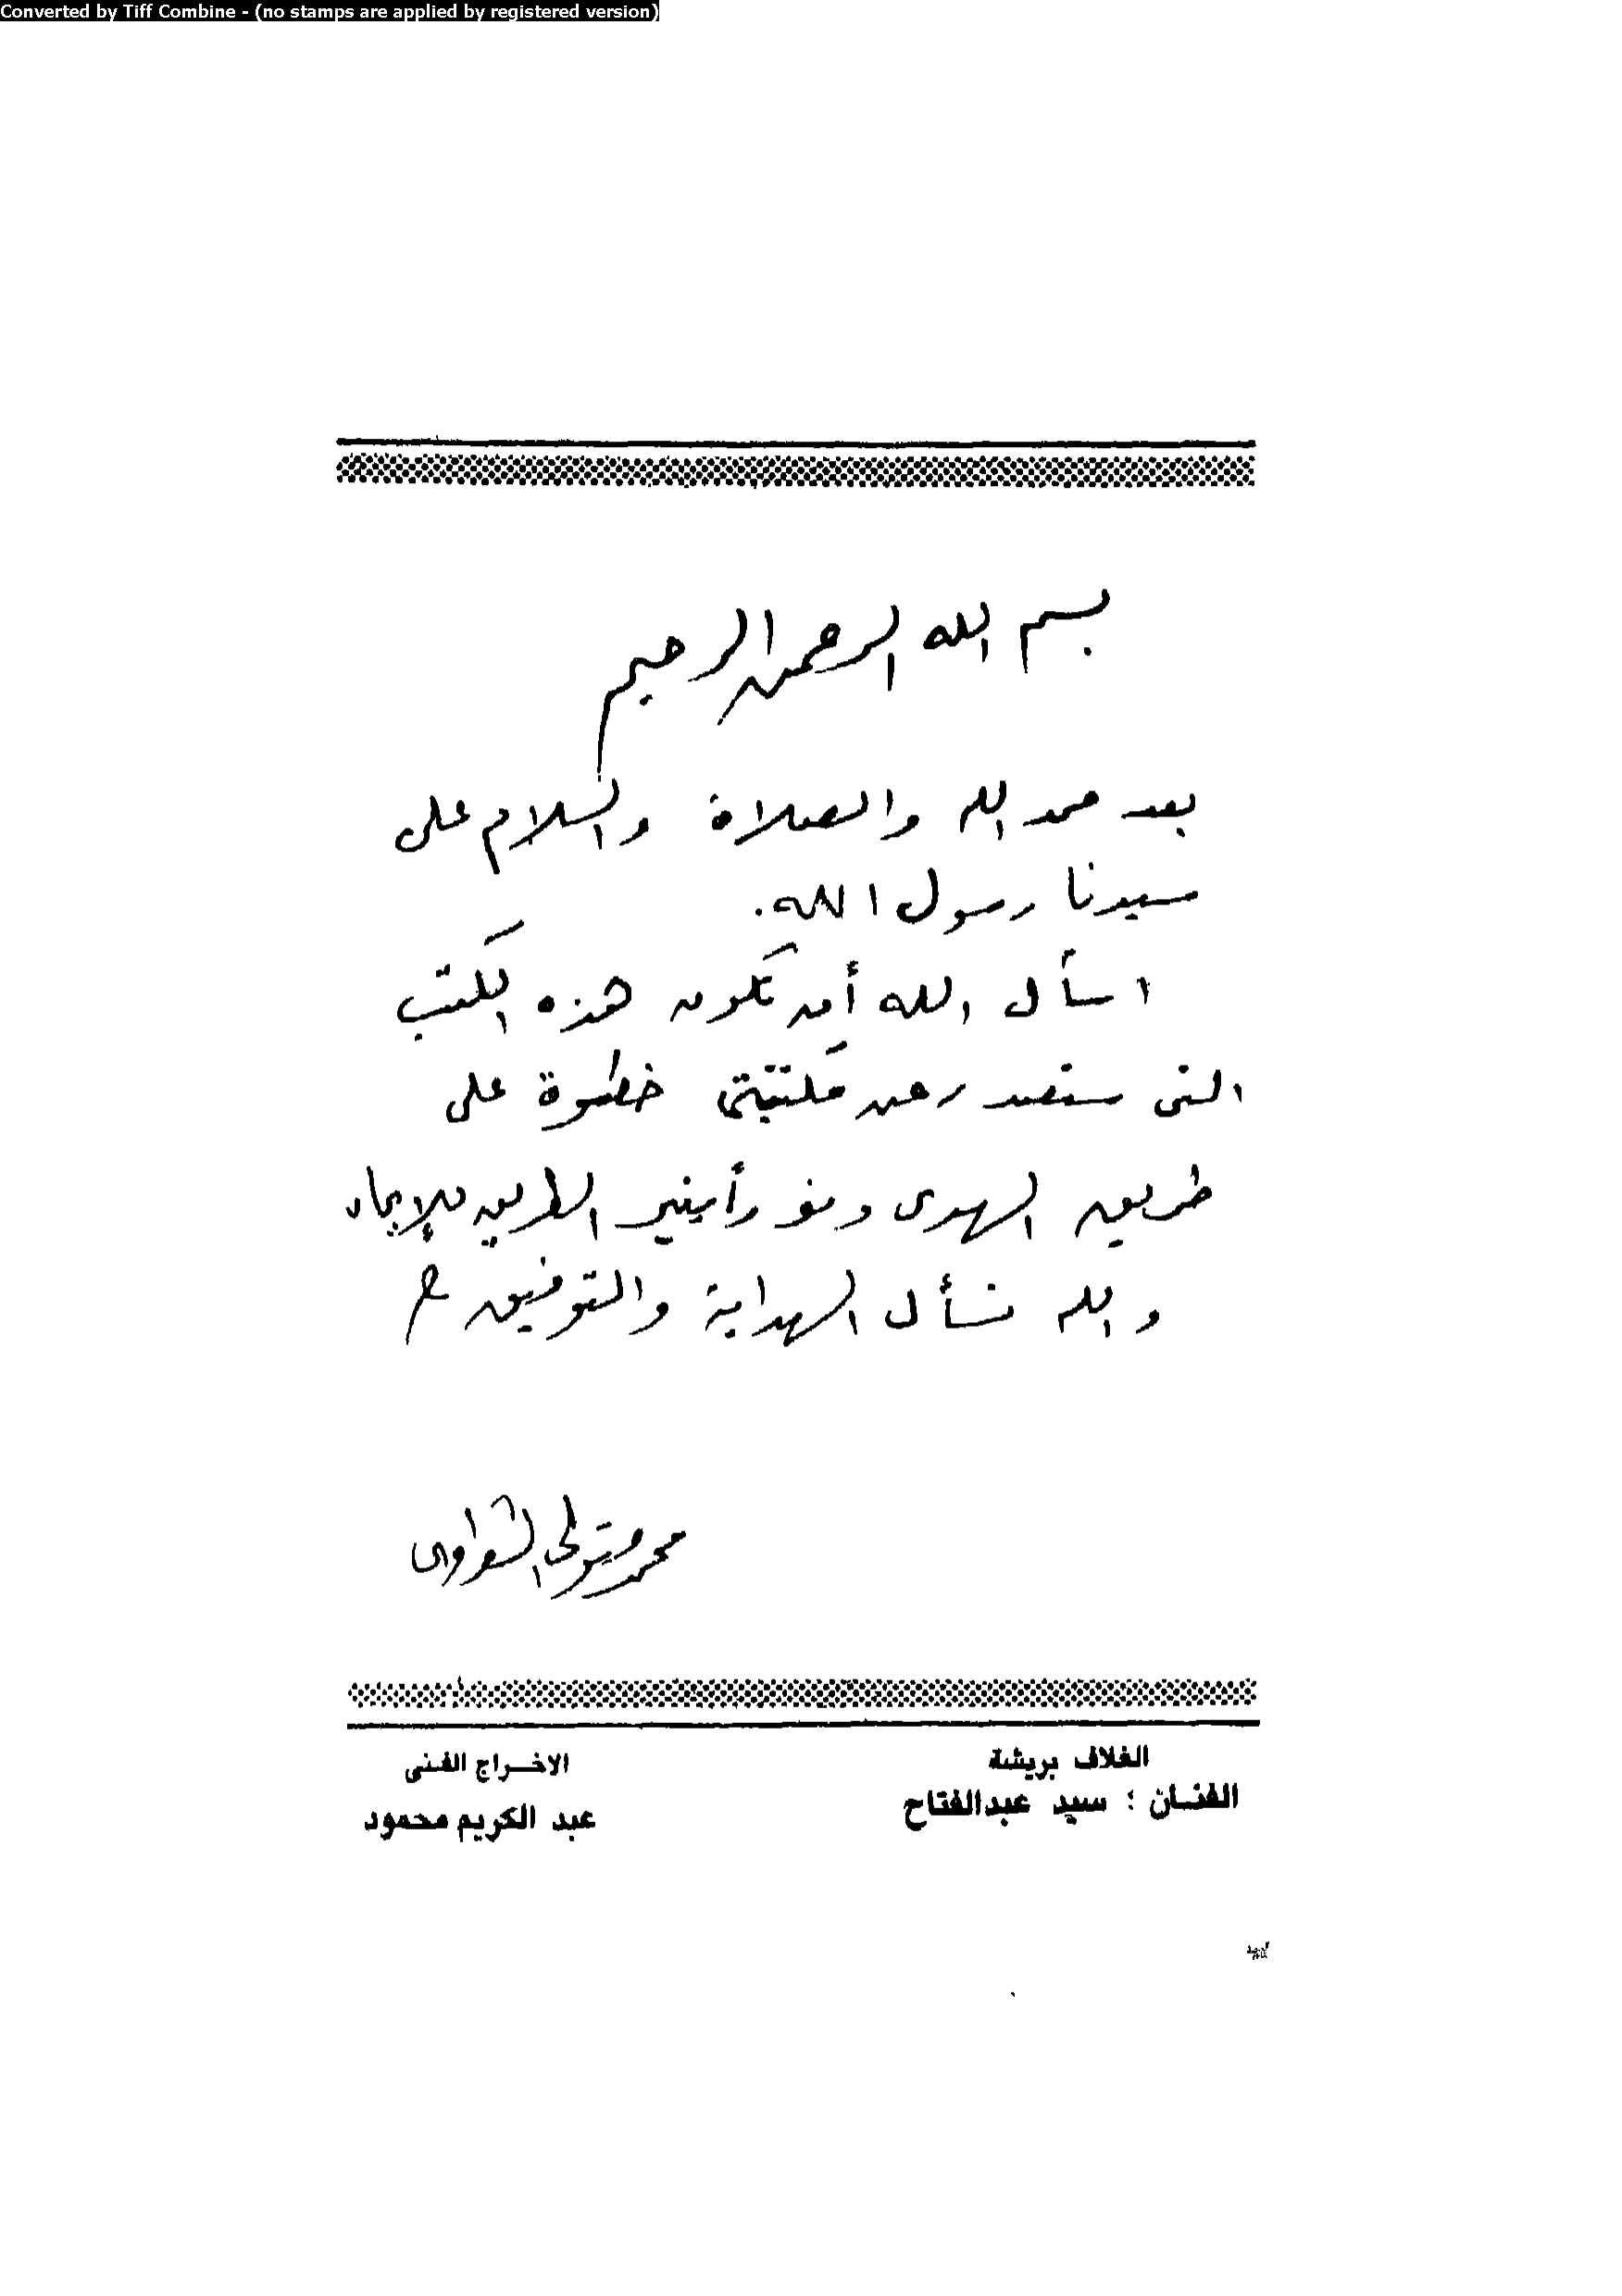 Converted by Tiff Combine - (no stamps are applied by registered version)
بسم الله الرحمن الرحيم
بعد حمد الله والصلاة والسلام على
سيدنا رسول الله.
اسأل الله أن تكون هذه الكتب
التى ستصدر عن مكتبتى خطوة على
طريق الهدى ونورا ينير الطريق للإيمان
والله نسأل الهداية والتوفيق
محمد متولى الشعراوى
الغلاف بريشة
الفنان : سيد عبدالفتاح
الاخراج الفنى
عبد الكريم محمود